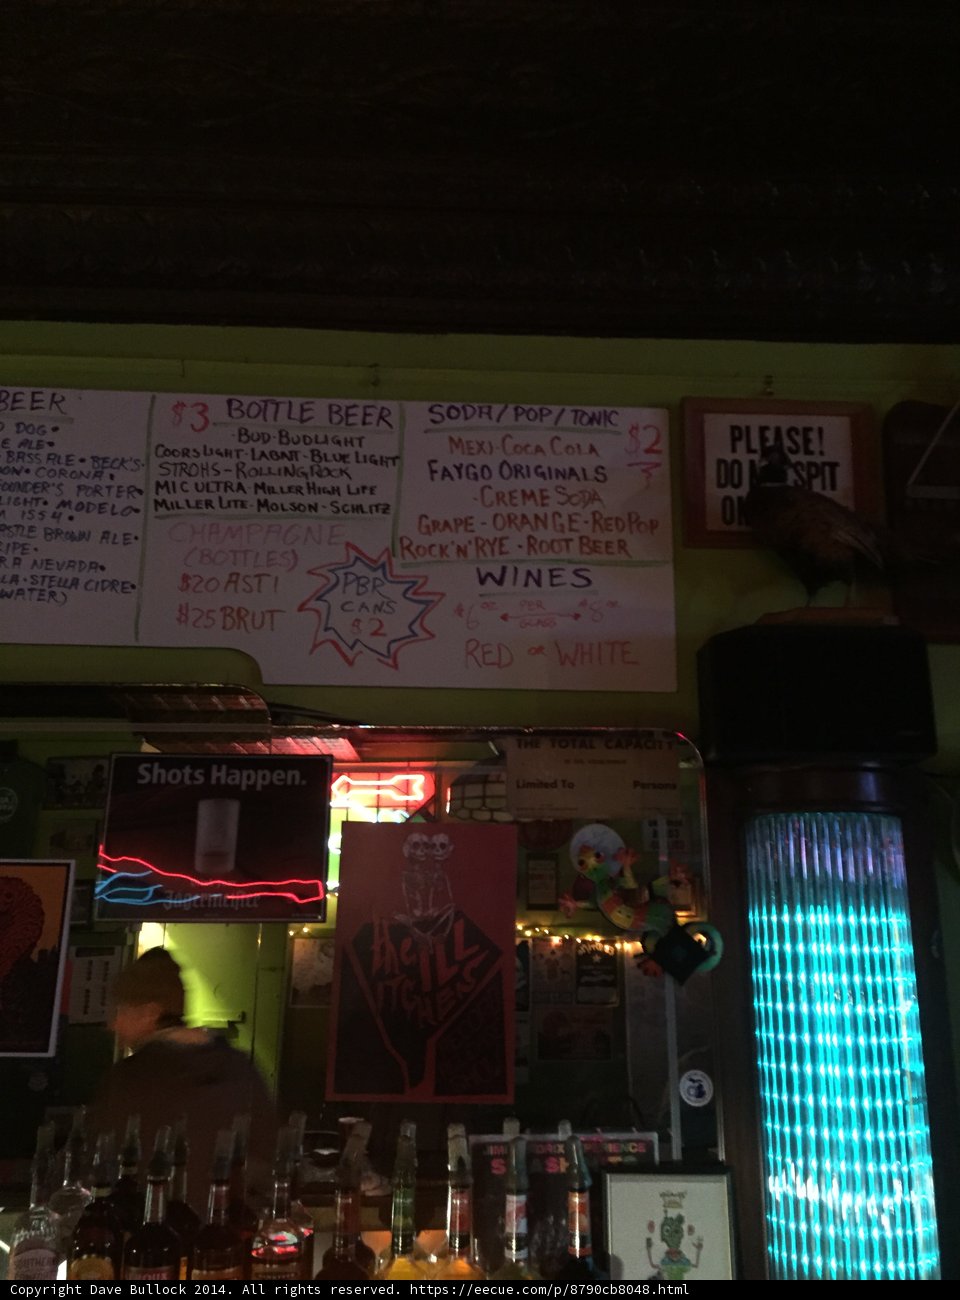 BEER
DOG•
E ALE•
BASS ALE • BECK'S•
ON • CORONA •
FOUNDER'S PORTER•
LIGHT • MODELO•
1554 •
CASTLE BROWN ALE•
IPE•
RA NEVADA•
LA • STELLA CIDRE•
WATER)
$3 BOTTLE BEER
•BUD•BUDLIGHT
COORS LIGHT•LABATT•BLUE LIGHT
STROHS-ROLLING ROCK
MIC ULTRA•MILLER HIGH LIFE
MILLER LITE•MOLSON•SCHLITZ
CHAMPAGNE
(BOTTLES)
$20 ASTI
$25 BRUT
PBR
CANS
$2
SODA/POP/TONIC
$2
MEXI-COCA COLA
FAYGO ORIGINALS
•CREME SODA
GRAPE-ORANGE•REDPOP
ROCK'N'RYE•ROOT BEER
WINES
$6 oz PER GLASS $8 oz
RED OR WHITE
PLEASE!
DO SPIT
ON
Shots Happen.
Jägermeister
THE TOTAL CAPACITY
Limited To Persons
KILL
Copyright Dave Bullock 2014. All rights reserved. https://eecue.com/p/8790cb8048.html